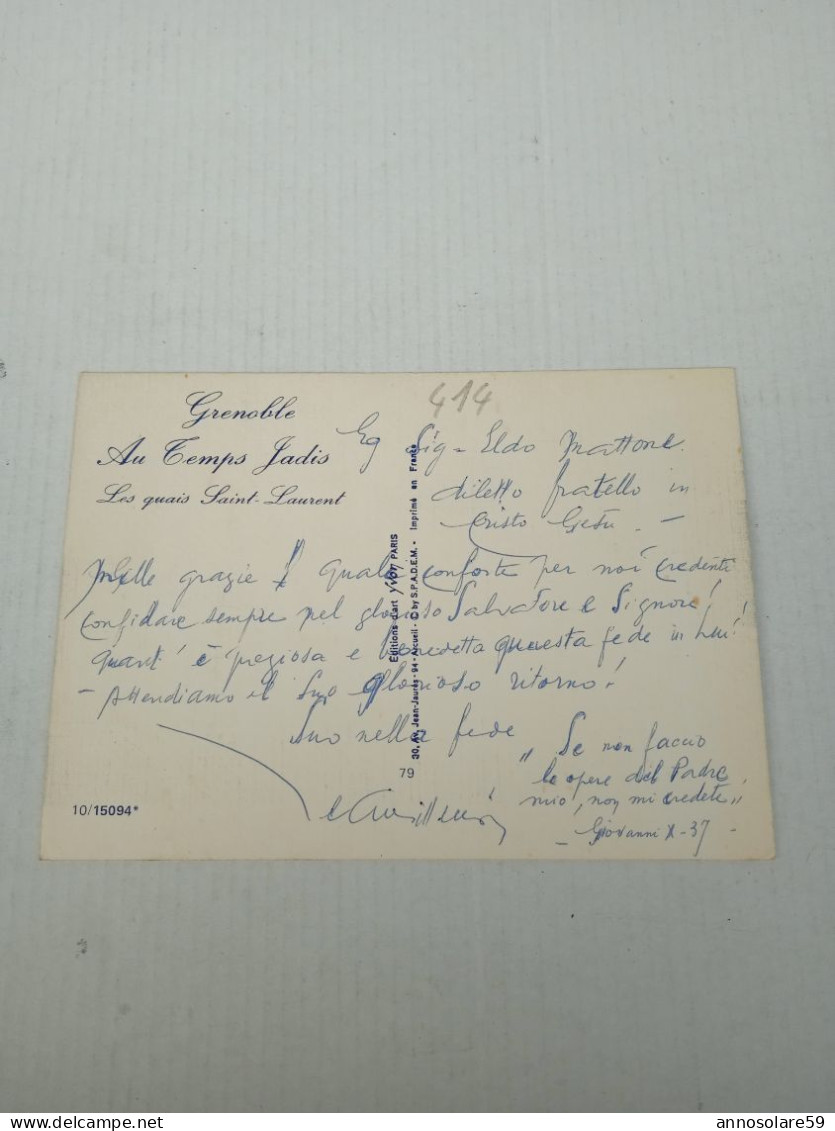 Grenoble
Au Temps Jadis
Les quais Saint-Laurent
414
Eg Sig= Eldo Mattone
diletto fratello in
Cristo Gesù. -
Mille grazie! Quale conforto per noi credenti
confidare sempre nel glorioso Salvatore e Signore!
quant'è preziosa e benedetta questa fede in Lui!
- Attendiamo il Suo glorioso ritorno!
Suo nella fede
"Se non faccio
le opere del Padre
mio, non mi credete"
- Giovanni X-37 -
Editions d'art YVON PARIS
30, Av. Jean-Jaurès - 94 - Arcueil - © by S.P.A.D.E.M. - Imprimé en France
79
10/15094*
Delcampe.net
annosolare59